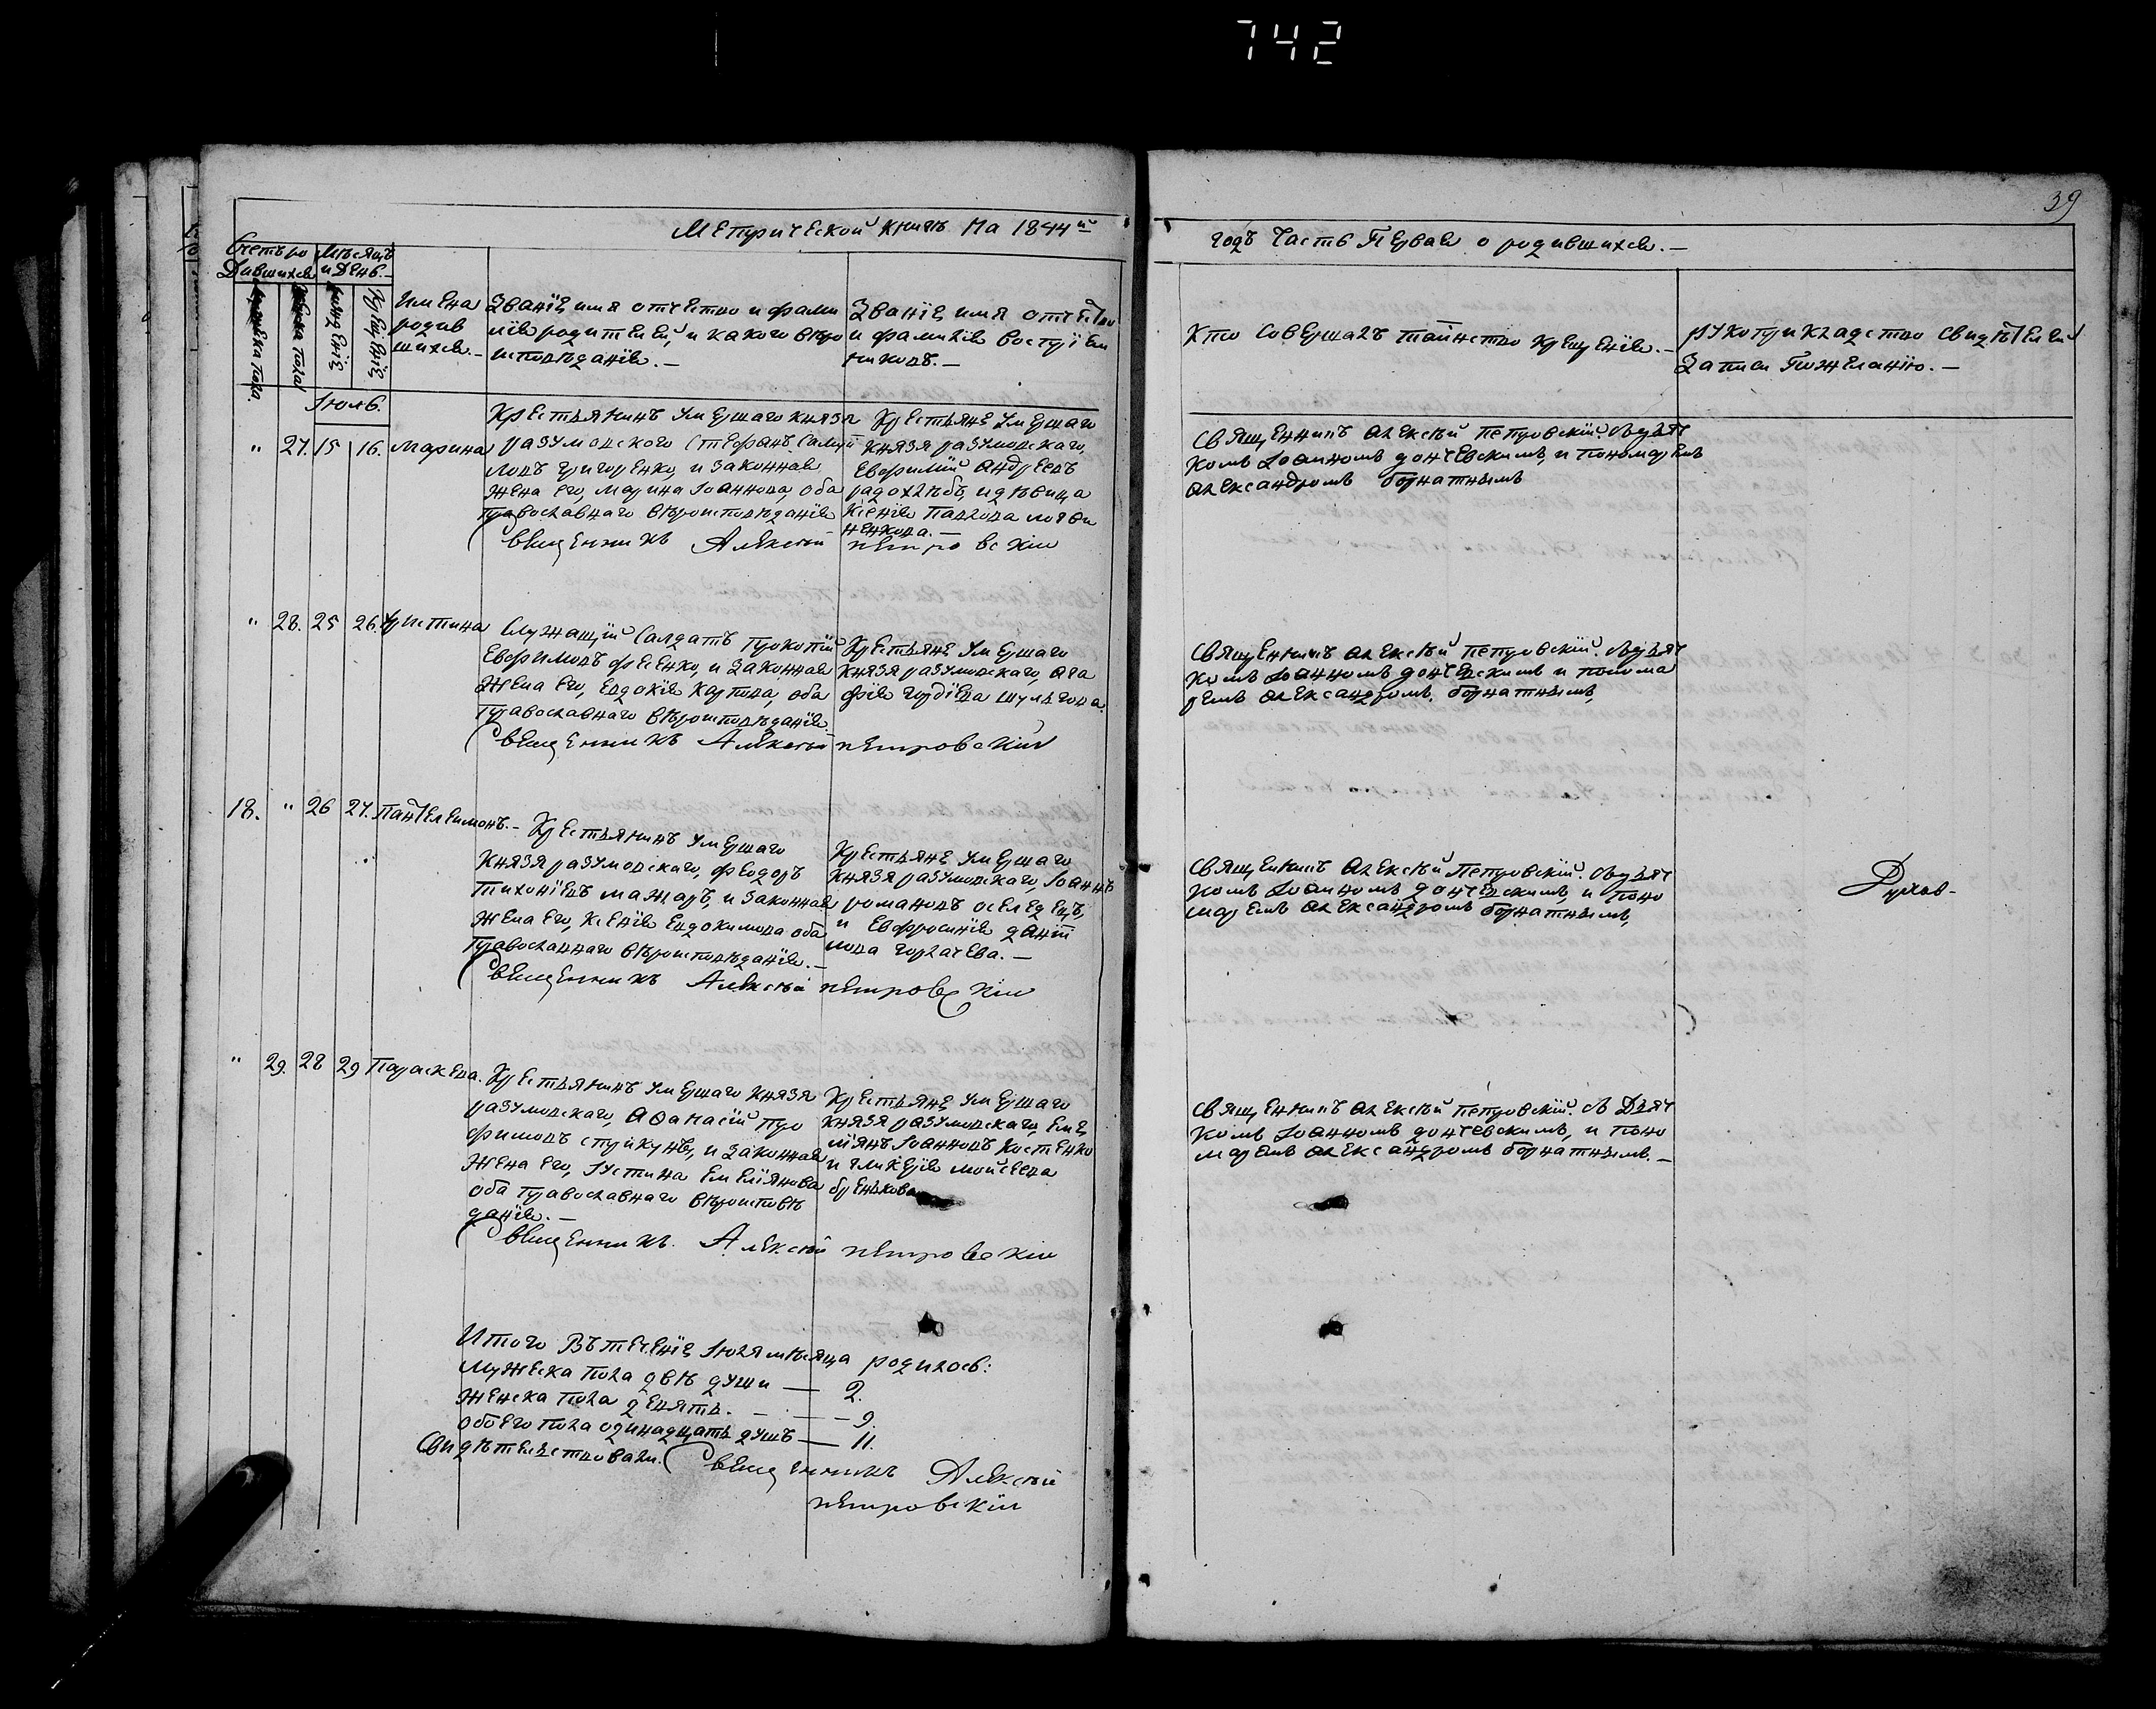 742
39
Метрической книгъ На 1844й
годъ Часть Первая о родившихся.—
Счетъ ро
дившихся
Мѣсяцъ
и День.—
Мужеска пола.
Женска пола
рожденіе
Крещеніе
Имена
родив
шихся.—
Званіе имя отчество и фами
лія родителей, и какого вѣро
исповѣданія.—
Званіе имя отчество
и фамилія воспріем
никовъ.—
Кто Совершалъ таинство Крещенія.—
рукоприкладство Свидѣтелей
Записи По желанію.—
Іюль.
" 27. 15 16. Марина
Крестьянинъ умершаго Князя
разумовского Стефанъ Самуй
ловъ григоренко, и законная
жена его, Марина Іоаннова, оба
Православнаго вѣроисповѣданія
Крестьяне умершаго
Князя разумовскаго,
Евфимій Андреевъ
радохлѣбъ, и дѣвица
Ксенія Павлова
ненкова.—
Священникъ Алексѣй Петровскій
Священникъ Алексѣй Петровскій. съ дьяч
комъ Іоанномъ дончевскимъ, и пономаремъ
Александромъ богнатнымъ
" 28. 25 26. Христина
Служащій Солдатъ Прокопій
Евфимовъ фесенко, и законная
жена его, Евдокія Карпова, оба
Православнаго вѣроисповѣданія.
Крестьяне умершаго
Князя разумовскаго, Ага
фія гордіева шульгова.
Священникъ Алексѣй Петровскій
Священникъ Алексѣй Петровскій. съ дьяч
комъ Іоанномъ дончевскимъ и понома
ремъ Александромъ богнатнымъ,
18. " 26 27. Пантелеимонъ.— Крестьянинъ умершаго
Князя разумовскаго, феодоръ
Тихоніевъ мажаръ, и законная
жена его, Ксенія Евдокимова оба
Православнаго вѣроисповѣданія.—
Крестьяне умершаго
Князя разумовскаго, Іоаннъ
романовъ оселедецъ,
и Евфросинія даніи
лова горлачева.—
Священникъ Алексѣй Петровскій
Священникъ Алексѣй Петровскій. съ дьяч
комъ Іоанномъ дончевскимъ, и поно
маремъ Александромъ богнатнымъ,
" 29. 28 29 Параскева. Крестьянинъ умершаго Князя
разумовскаго, Аѳанасій Про
фимовъ стуйкунъ, и законная
жена его, Іустина Емеліянова
оба Православнаго вѣроисповѣ
данія.—
Крестьяне умершаго
Князя разумовскаго, Еме
ліянъ Іоанновъ Костенко
и гликерія мойсеева
бренькова
Священникъ Алексѣй Петровскій
Священникъ Алексѣй Петровскій. съ Дьяч
комъ Іоанномъ дончевскимъ, и поно
маремъ Александромъ богнатнымъ.—
Итого Въ теченіе Іюля мѣсяца родилось:
Мужеска пола двѣ души — 2.
женска пола девять. — — 9.
обоего пола одинадцать душъ — 11.
Свидѣтельствовали. Священникъ Алексѣй
Петровскій